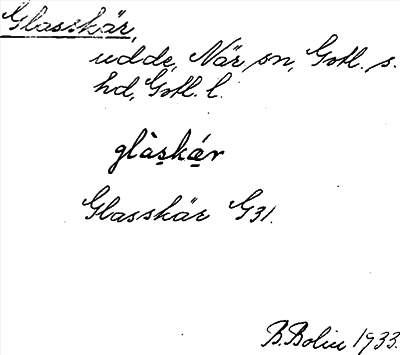 Glasskär,
udde, När sn, Gotl. s.
hd, Gotl. l.
glàskár
Glasskär G31.
B. Bolin 1933.